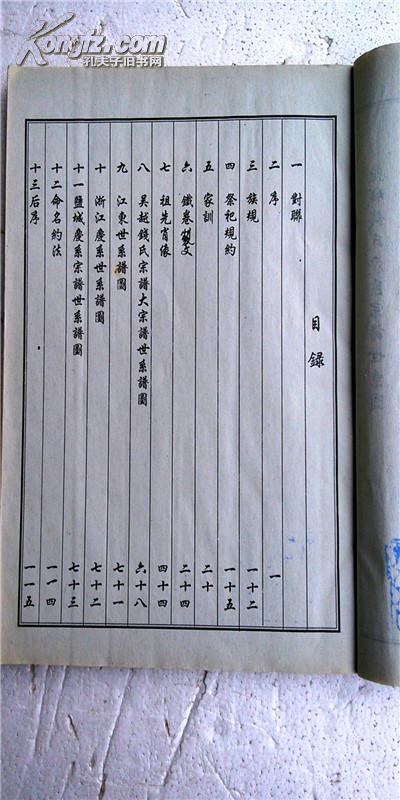 Kongfz.com
孔夫子旧书网
目录
一 對聯
二 序 一
三 族規 一十二
四 祭祀規約 一十五
五 家訓 二十
六 鐵卷 文 二十四
七 祖先肖像 四十四
八 吴越錢氏宗譜大宗譜世系譜圖 六十八
九 江東世系譜圖 七十一
十 浙江慶系世系譜圖 七十二
十一 鹽城慶系宗譜世系譜圖 七十三
十二 命名約法 一一四
十三 后序 一一五